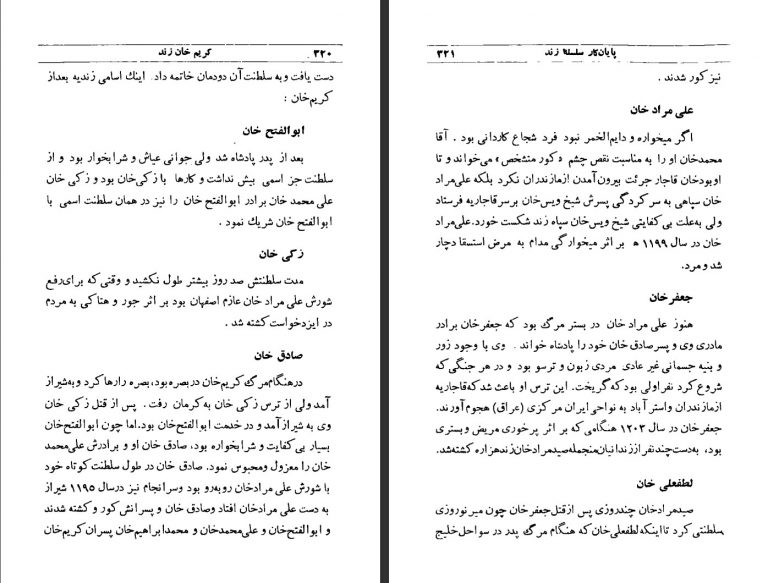 ۳۲۰ کریم خان زند
دست یافت و به سلطنت آن دودمان خاتمه داد. اینك اسامی زندیه بعداز
کریم‌خان :
ابوالفتح خان
بعد از پدر پادشاه شد ولی جوانی عیاش و شرابخوار بود و از
سلطنت جز اسمی بیش نداشت و کارها با زکی‌خان بود و زکی خان
علی محمد خان برادر ابوالفتح خان را نیز در همان سلطنت اسمی با
ابوالفتح خان شریك نمود .
زکی خان
مدت سلطنتش صد روز بیشتر طول نکشید و وقتی‌که برای‌رفع
شورش علی مراد خان عازم اصفهان بود بر اثر جور و هتاکی به مردم
در ایزدخواست کشته شد .
صادق خان
درهنگام‌مرگ کریم‌خان دربصره‌بود، بصره رارها کرد وبه‌شیراز
آمد ولی از ترس زکی خان به کرمان رفت . پس از قتل زکی خان
وی به شیراز آمد و در خدمت ابوالفتح‌خان بود. اما چون ابوالفتح‌خان
بسیار بی‌کفایت و شرابخواره بود، صادق خان او و برادرش علی‌محمد
خان را معزول ومحبوس نمود. صادق خان در طول سلطنت کوتاه خود
با شورش علی مرادخان روبه‌رو بود وسرانجام نیز درسال ۱۱۹۵ شیراز
به دست علی مرادخان افتاد وصادق خان و پسرانش کور و کشته شدند
و ابوالفتح‌خان و علی‌محمدخان و محمدابراهیم‌خان پسران کریم‌خان
پایان‌کار سلسلهٔ زند ۳۲۱
نیز کور شدند .
علی مراد خان
اگر میخواره و دایم‌الخمر نبود فرد شجاع کاردانی بود . آقا
محمدخان او را به مناسبت نقص چشم «کور متشخص» می‌خواند و تا
اوبودخان قاجار جرئت بیرون آمدن ازمازندران نکرد بلکه علی‌مراد
خان سپاهی به سرکردگی پسرش شیخ ویس‌خان برسرقاجاریه فرستاد
ولی به‌علت بی‌کفایتی شیخ ویس‌خان سپاه زند شکست خورد. علی‌مراد
خان در سال ۱۱۹۹ ه بر اثر میخوارگی مدام به مرض استسقا دچار
شد و مرد.
جعفرخان
هنوز علی مراد خان در بستر مرگ بود که جعفرخان برادر
مادری وی و پسرصادق خان خود را پادشاه خواند . وی با وجود زور
و بنیه جسمانی غیر عادی مردی زبون و ترسو بود و در هر جنگی که
شروع کرد نفر اولی بود که گریخت. این ترس او باعث شد که‌قاجاریه
ازمازندران واستر آباد به نواحی ایران مرکزی (عراق) هجوم آورند.
جعفرخان در سال ۱۲۰۳ هنگامی که بر اثر پرخوری مریض و بستری
بود، به‌دست چند نفر از زندانیان منجمله صیدمرادخان زندهزاره کشته‌شد.
لطفعلی خان
صیدمرادخان چندروزی پس ازقتل جعفرخان چون میر نوروزی
سلطنتی کرد تااینکه لطفعلی‌خان که هنگام مرگ پدر در سواحل خلیج